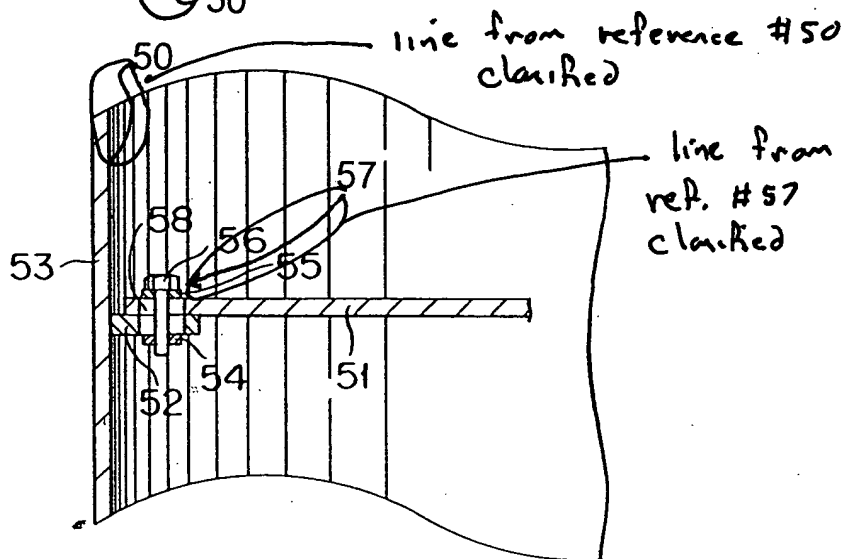 50
line from reference #50
clarified
50
57
line from
ref. #57
clarified
58
56
53
55
54
51
52